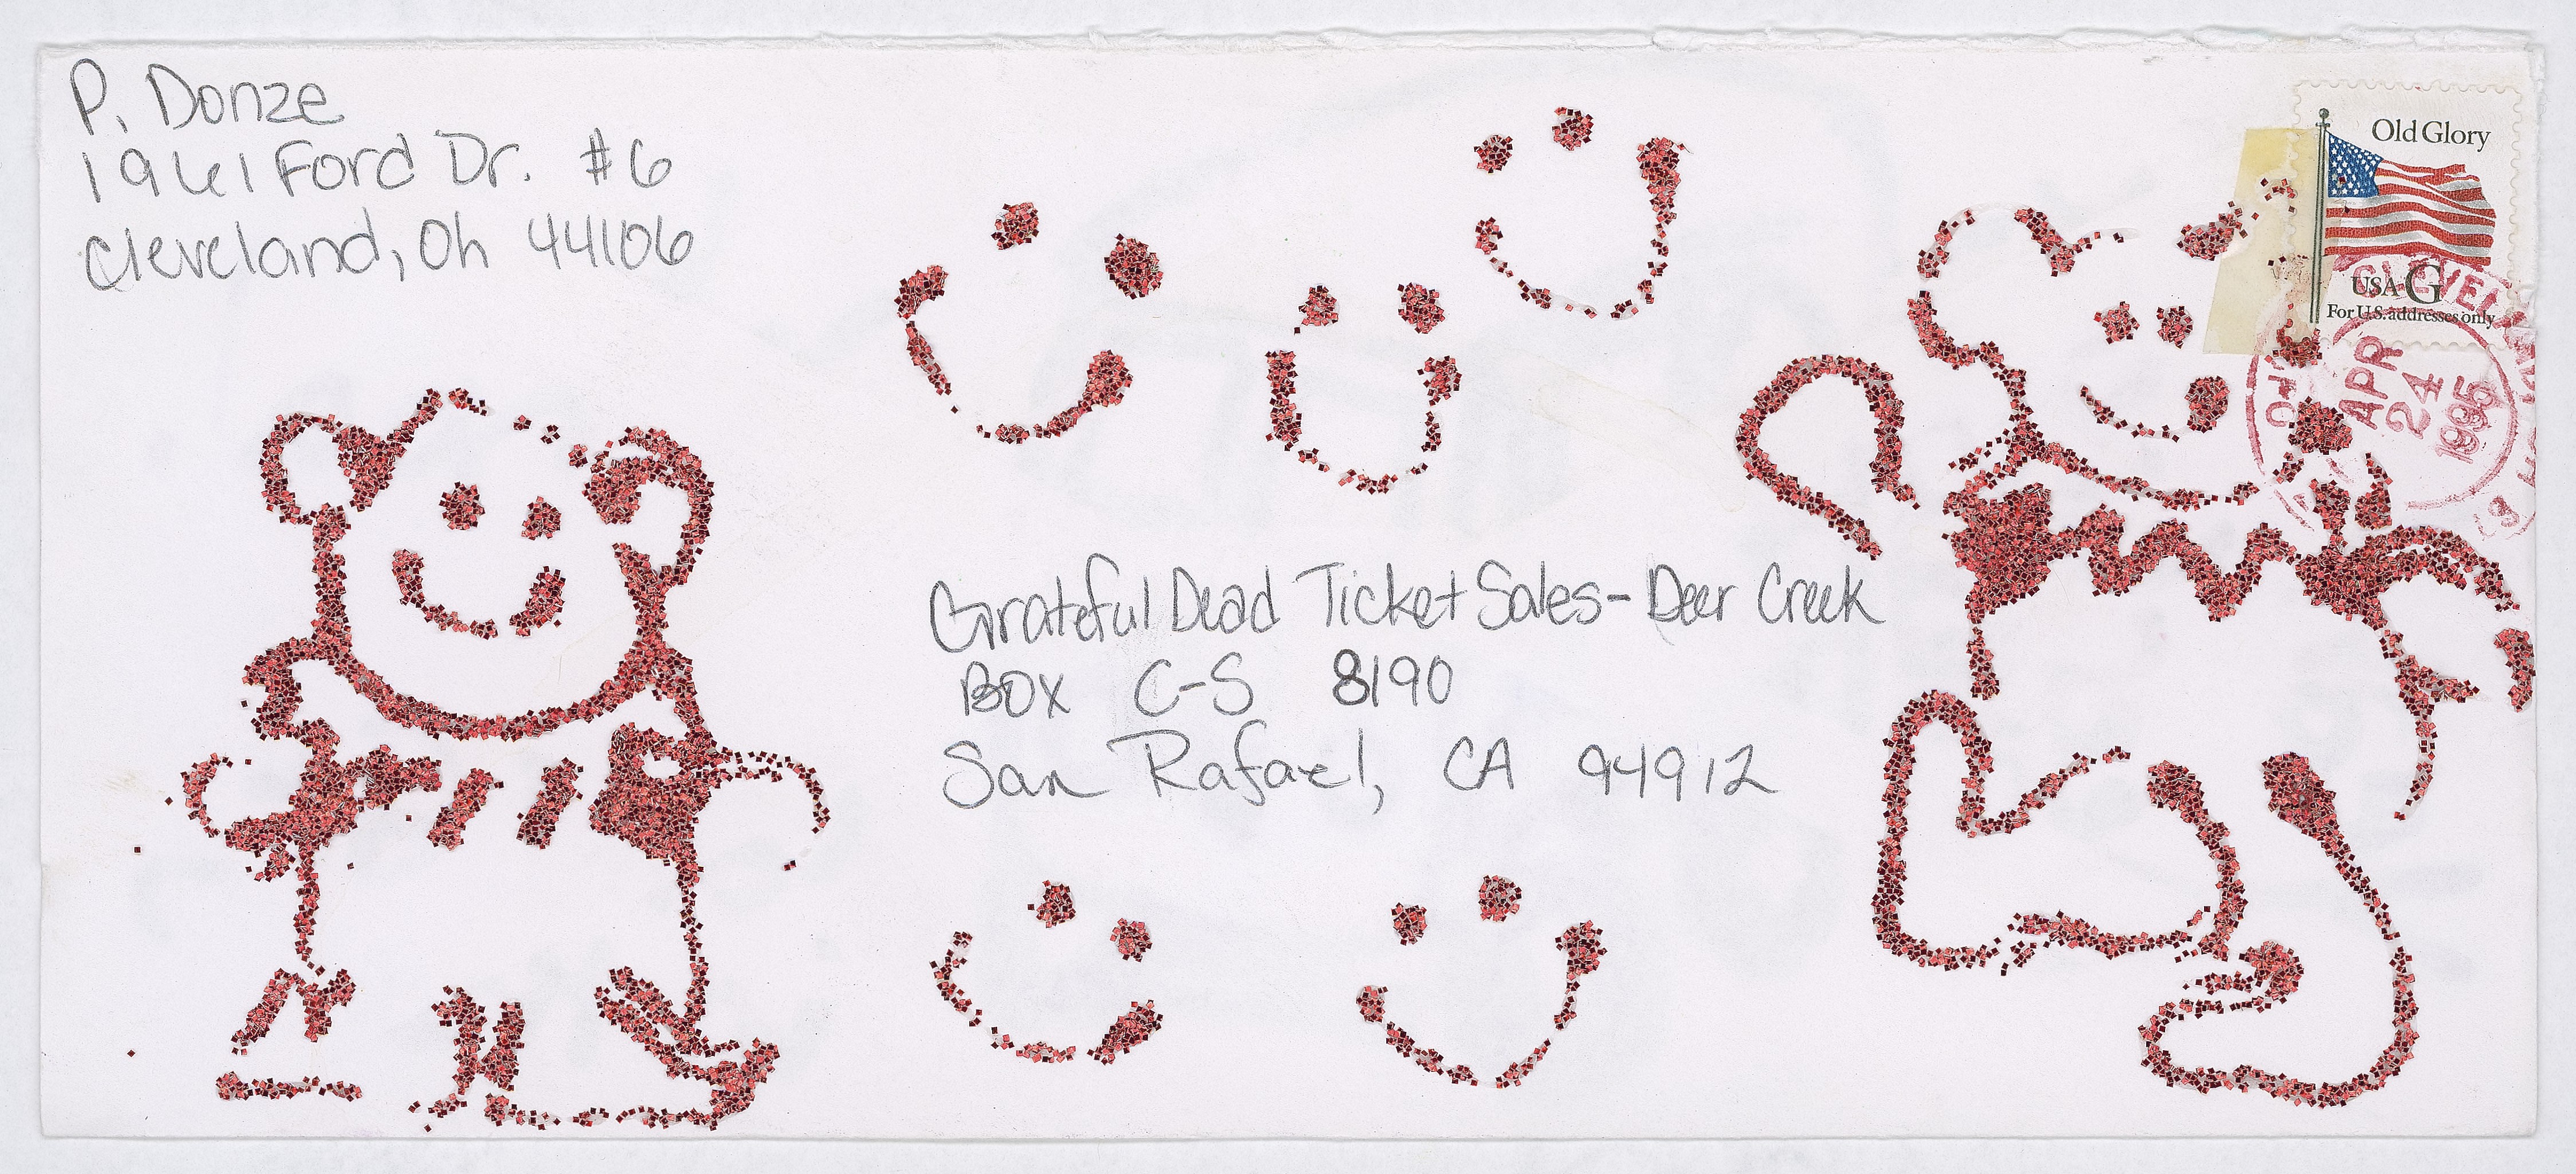 P. Donze
1961 Ford Dr. #6
Cleveland, Oh 44106
Old Glory
USA G
For U.S. addresses only
APR
24
1995
Grateful Dead Ticket Sales - Deer Creek
Box C-S 8190
San Rafael, CA 94912